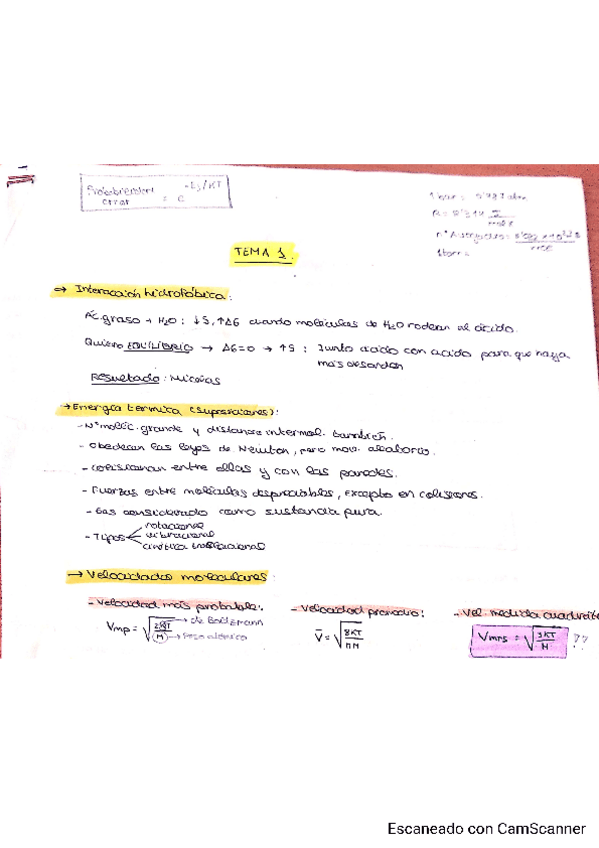 -Es/KT
error = e
1 bar = 0'987 atm
R = 8'314 J
mol k
nº Avogadro: 6'022 x 10^23
1 torr =
TEMA 1.
→ Interacción hidrofóbica:
Ác. graso + H2O : ↓S, ↑ΔG cuando moléculas de H2O rodean al ácido.
Quiero EQUILIBRIO → ΔG=0 → ↑S : Junto ácido con ácido para que haya
más desorden
Resultado: Micelas
→ Energía térmica (suposiciones):
- Nº moléc. grande y distancia intermol. también.
- Obedecen las leyes de Newton, pero mov. aleatorio.
- Colisionan entre ellas y con las paredes.
- Fuerzas entre moléculas despreciables, excepto en colisiones.
- Gas considerado como sustancia pura.
- Tipos
rotacional
vibracional
cinética traslacional
→ Velocidades moleculares:
- Velocidad más probable:
- Velocidad promedio:
- Vel. media cuadrát
Vmp = √2KT/M → de Boltzmann
→ Peso atómico
V̄ = √8KT/πM
Vmrs = √3KT/M ??
Escaneado con CamScanner